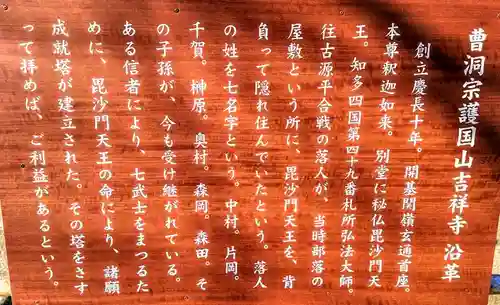 曹洞宗護国山吉祥寺 沿革
創立慶長十年。 開基関嶺玄通首座。
本尊釈迦如来。 別堂に秘仏毘沙門天
王。 知多四国第四十九番札所弘法大師。
往古源平合戦の落人が、 当時部落の
屋敷という所に、毘沙門天王を、背
負って隠れ住んでいたという。落人
の姓を七名字という。中村。片岡。
千賀。榊原。奥村。森岡。森田。そ
の子孫が、今も受け継がれている。
ある信者により、七武士をまつるた
めに、毘沙門天王の命により、諸願
成就塔が建立された。その塔をさす
って拝めば、ご利益があるという。